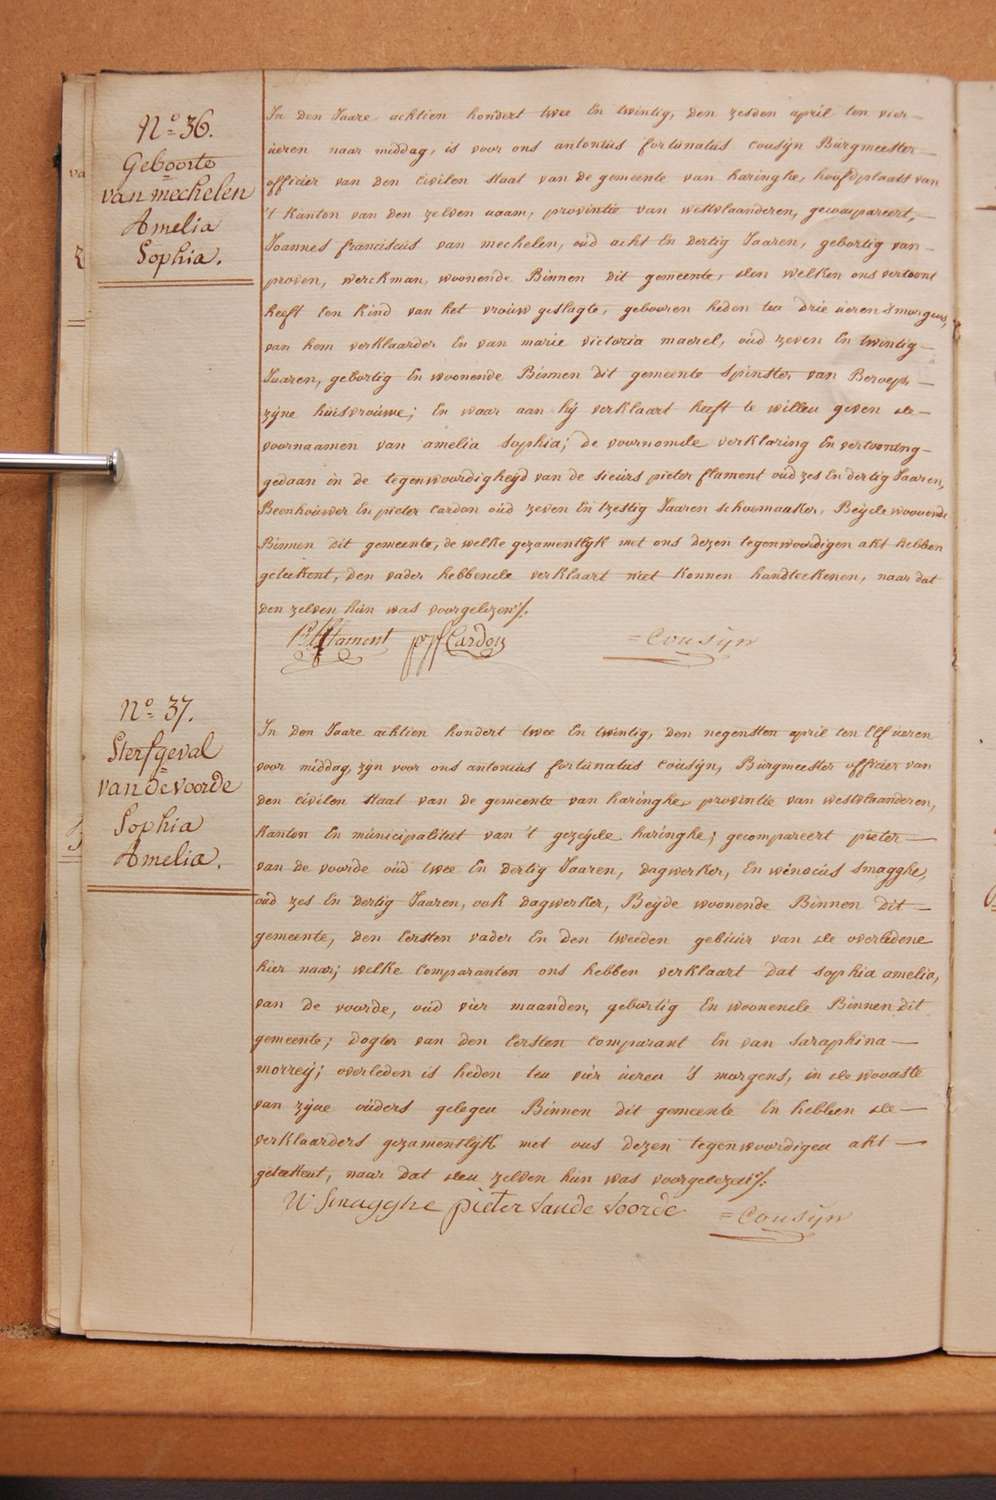 N.º 36.
Geboorte
van mechelen
Amelia
Sophia.
In den Jaare achtien hondert twee En twintig, den zesden april ten vier
üeren naar middag, is voor ons antonius fortunatus cousÿn Bürgmeester
officier van den civilen staat van de gemeente van haringhe, hoofdplaats van
't Kanton van den zelven naam, provintie van westvlaanderen, gecompareert,
Joannes franciscus van mechelen, oüd acht En dertig Jaaren, gebortig van
proven, werckman, woonende Binnen dit gemeente, den welken ons vertoont
heeft een Kind van het vrouw geslagte, gebooren heden ten drie üeren smorgens,
van hem verklaarder En van marie victoria maerel, oüd zeven En twintig
Jaaren, gebortig En woonende Binnen dit gemeente spinster van Beroep
zÿne hüisvroüwe; En waar aan hÿ verklaart heeft te willen geven de
voornaamen van amelia sophia; de voornomde verklaring En vertooning
gedaan in de tegenwoordigheÿd van de sieürs pieter flament oüd zes En dertig Jaaren,
Beenhoüwer En pieter Cardon oüd zeven En tzestig Jaaren schoemaaker, Beÿde woonende
Binnen dit gemeente, de welke gezamentlÿk met ons dezen tegenwoordigen akt hebben
geteekent, den vader hebbende verklaart niet Konnen handteekenen, naar dat
den zelven hün was voorgelezen./.
Pr Flament ppfCardon =Cousÿn
N.º 37.
Sterfgeval
van de voorde
Sophia
Amelia.
In den Jaare achtien hondert twee En twintig, den negensten april ten Elf üeren
voor middag, zÿn voor ons antonius fortunatus cousÿn, Bürgmeester officier van
den civilen staat van de gemeente van haringhe, provintie van westvlaanderen,
Kanton En municipalitüt van 't gezeÿde haringhe; gecompareert pieter
van de voorde oüd twee En dertig Jaaren, dagwerker, En winocüs Smagghe,
oüd zes En dertig Jaaren, ook dagwerker, Beÿde woonende Binnen dit
gemeente, den Eersten vader En den tweeden gebüür van de overledene
hier naar; welke Comparanten ons hebben verklaart dat sophia amelia,
van de voorde, oüd vier maanden, gebortig En woonende Binnen dit
gemeente; dogter van den Eersten comparant En van saraphina
morreÿ; overleden is heden ten vier üeren 's morgens, in de wooaste
van zÿne oüders gelegen Binnen dit gemeente En hebben de
verklaarders gezamentlÿk met ons dezen tegenwoordigen akt
geteekent, naar dat den zelven hün was voorgelezen./.
W Smagghe pieter Vande Voorde =Cousÿn